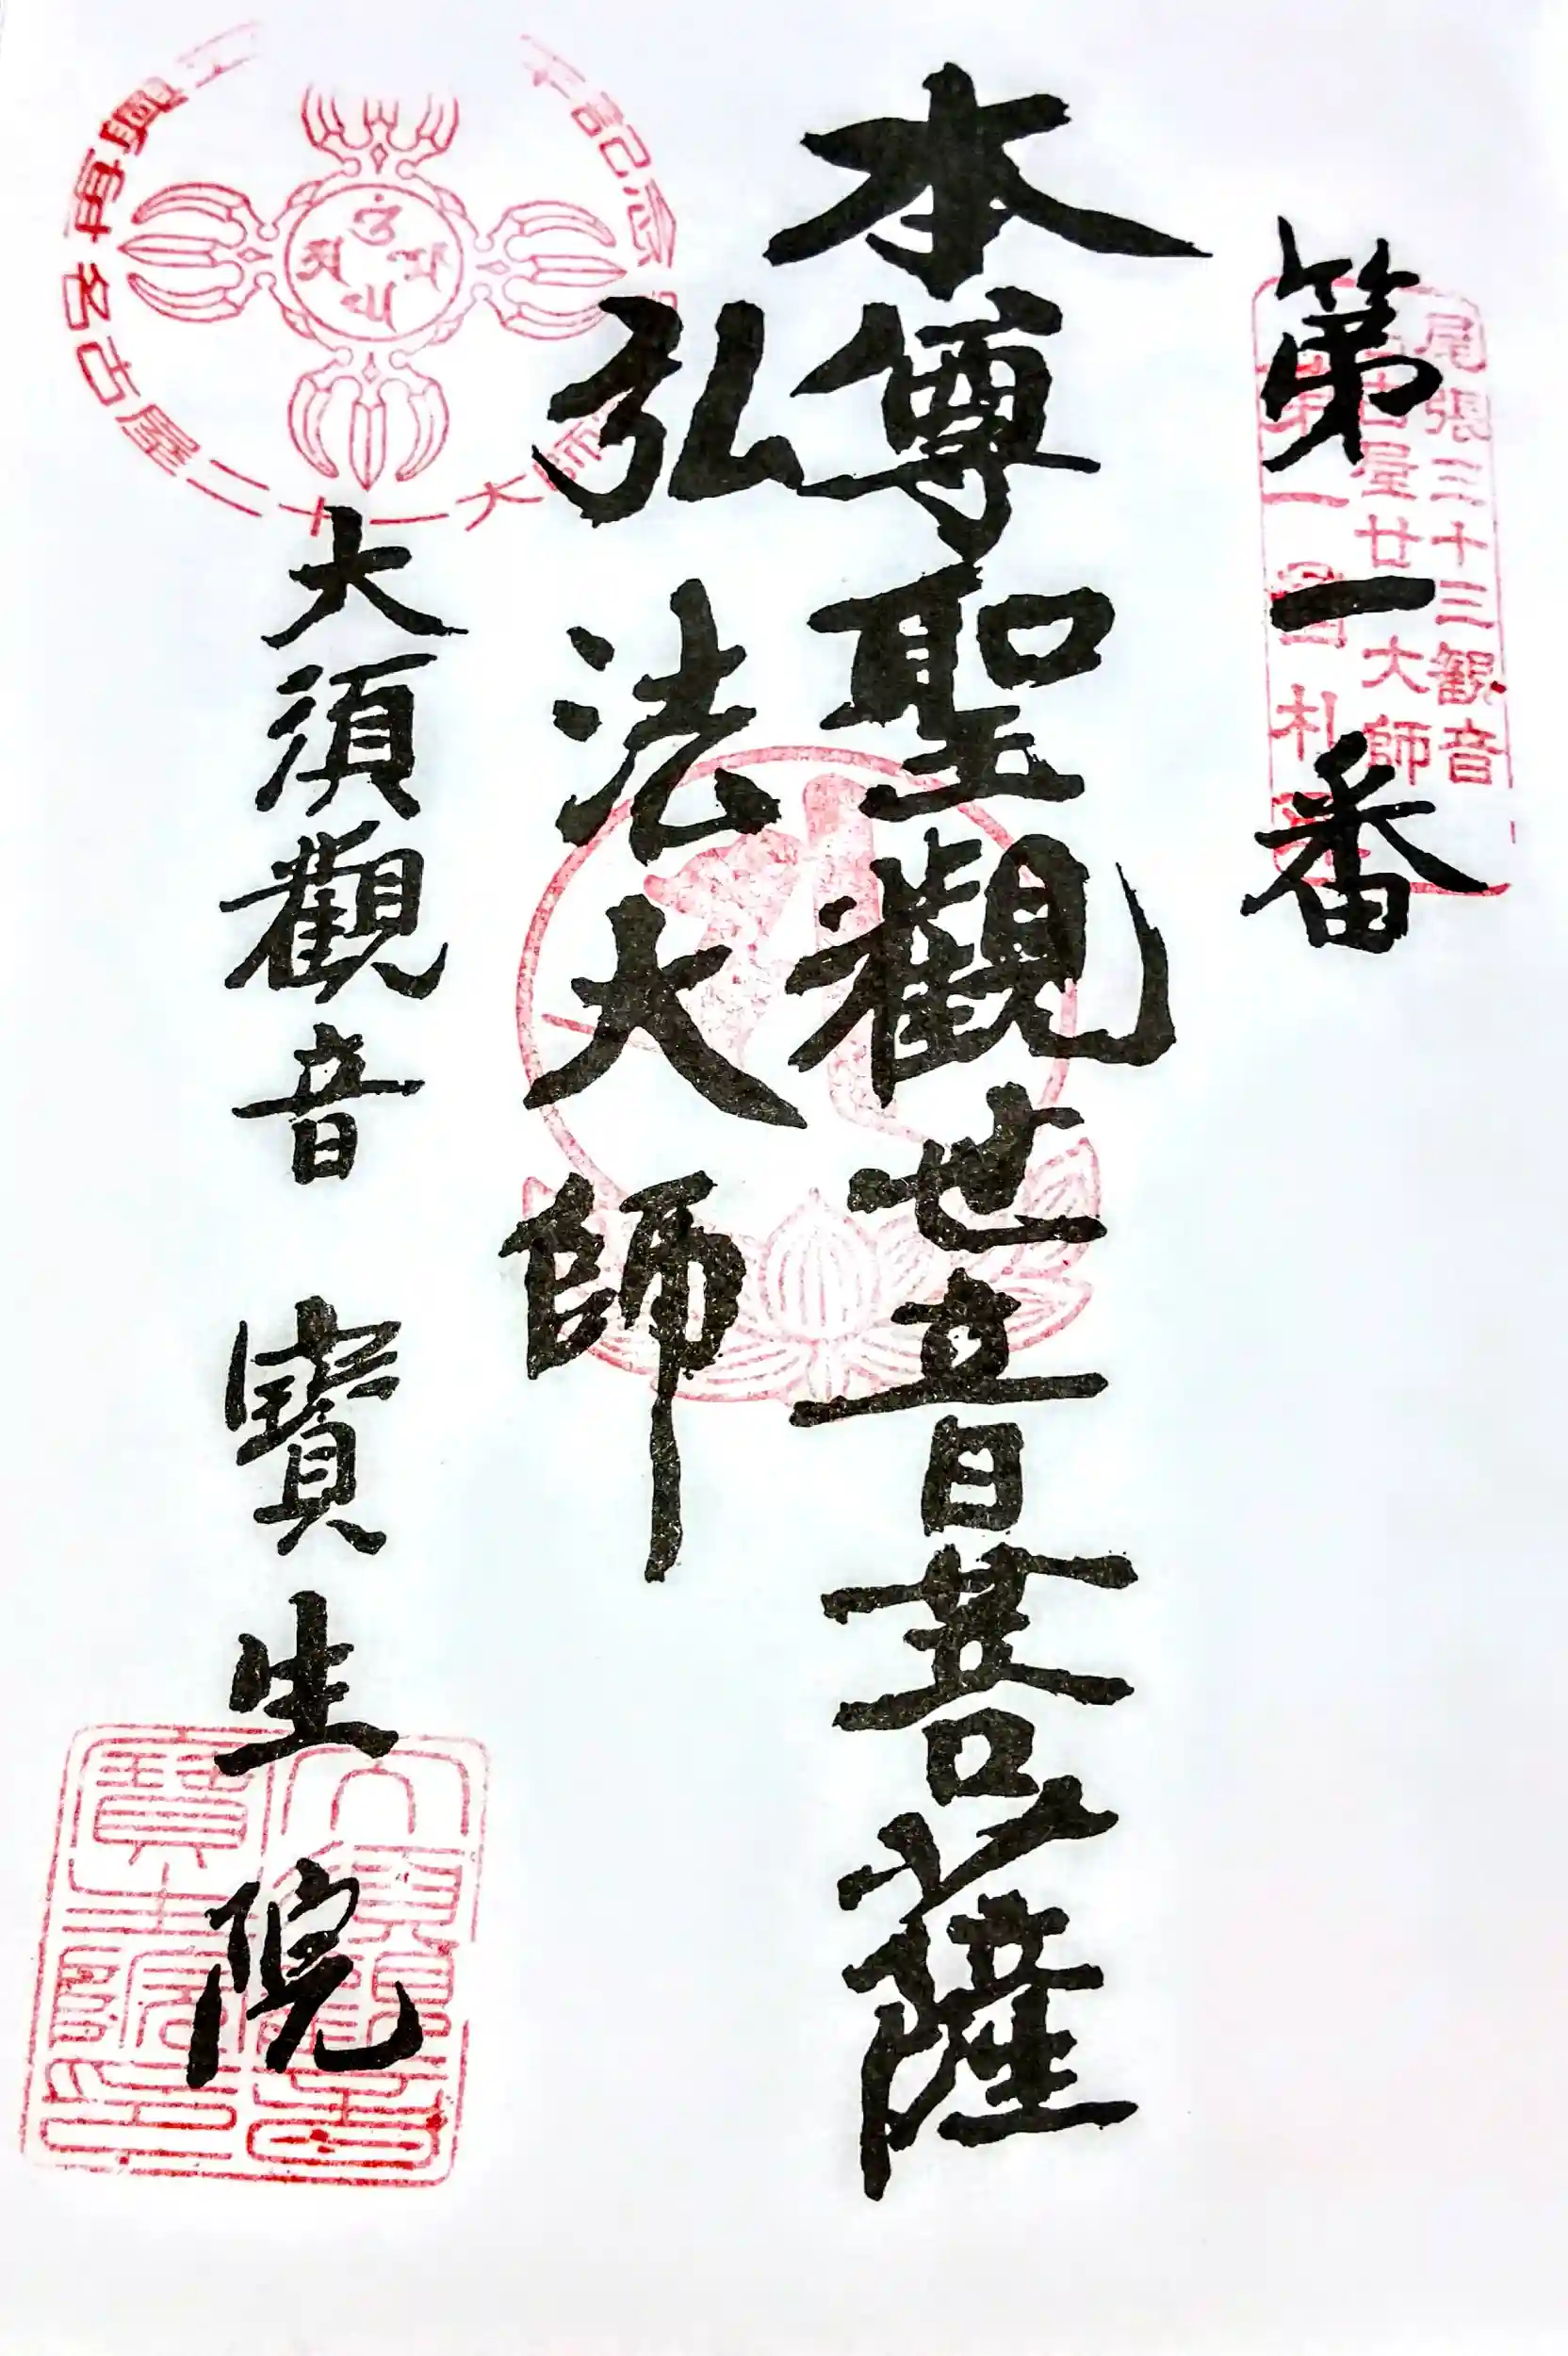 第一番
尾張三十三観音
名古屋廿一大師
第一番札所
本尊聖觀世音菩薩
弘法大師
大須觀音 寶生院
記念
開創
名古屋二十一大師
大須観音
寶生院印